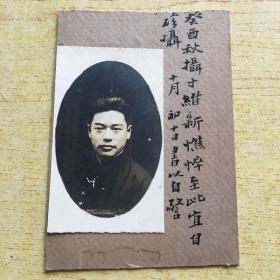 癸酉秋攝于維新憔悴至此宜自
珍攝
十月初十日書以自警